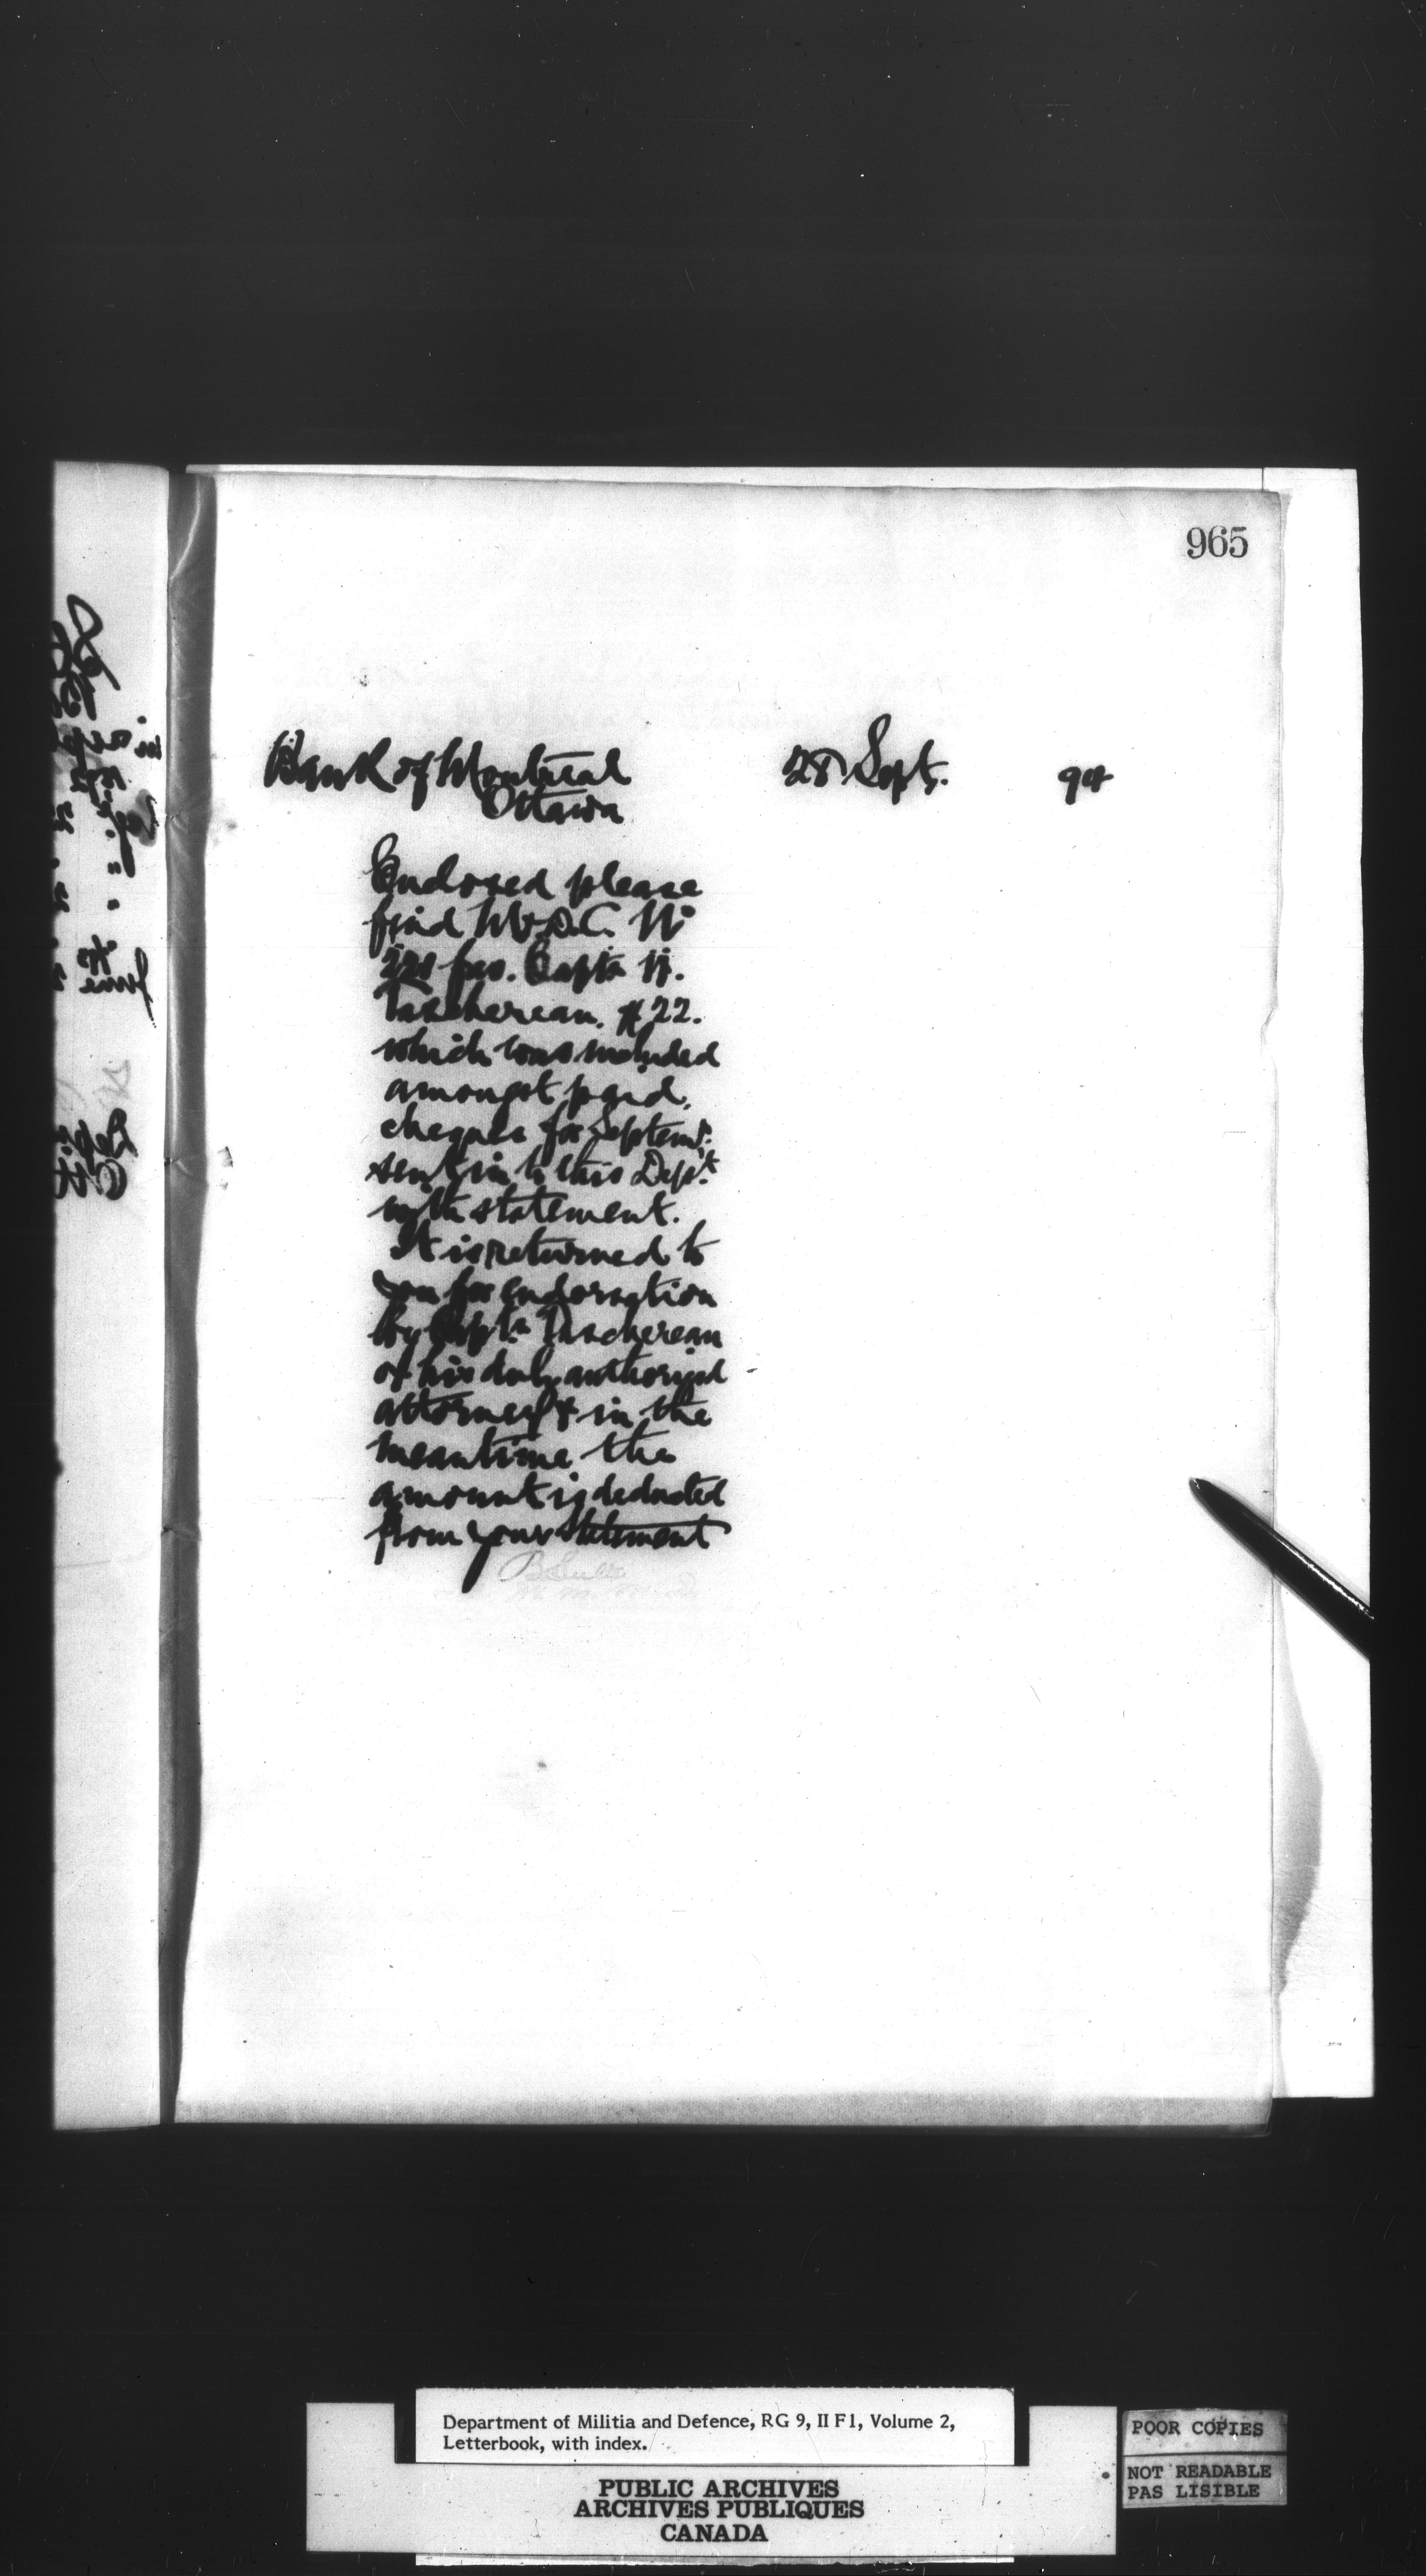 965
Bank of Montreal 28 Sept. 94
Ottawa
Enclosed please
find M.&D.C. No
221 fav. Capt.
Taschereau. $22.
which was included
amongst paid
cheques for Septemr.
sent in to this Dept.
with statement.
It is returned to
you for endorsation
by Capt. Taschereau
or his duly authorized
attorney & in the
meantime the
amount is deducted
from your statement
Department of Militia and Defence, RG 9, II F1, Volume 2,
Letterbook, with index.
PUBLIC ARCHIVES
ARCHIVES PUBLIQUES
CANADA
POOR COPIES
NOT READABLE
PAS LISIBLE